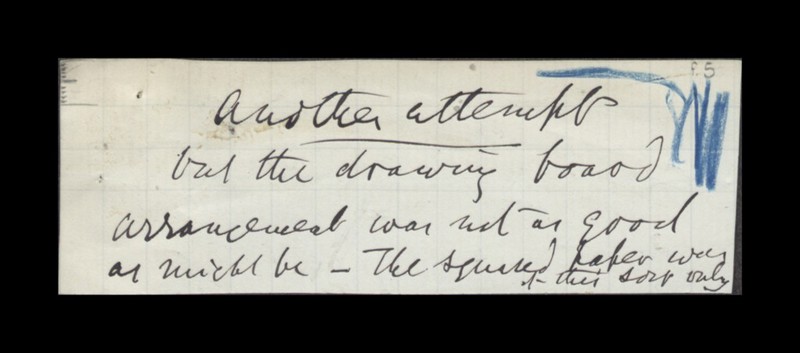 25
Another attempt
but the drawing board
arrangement was not as good
as might be – The squared paper was
of this sort only